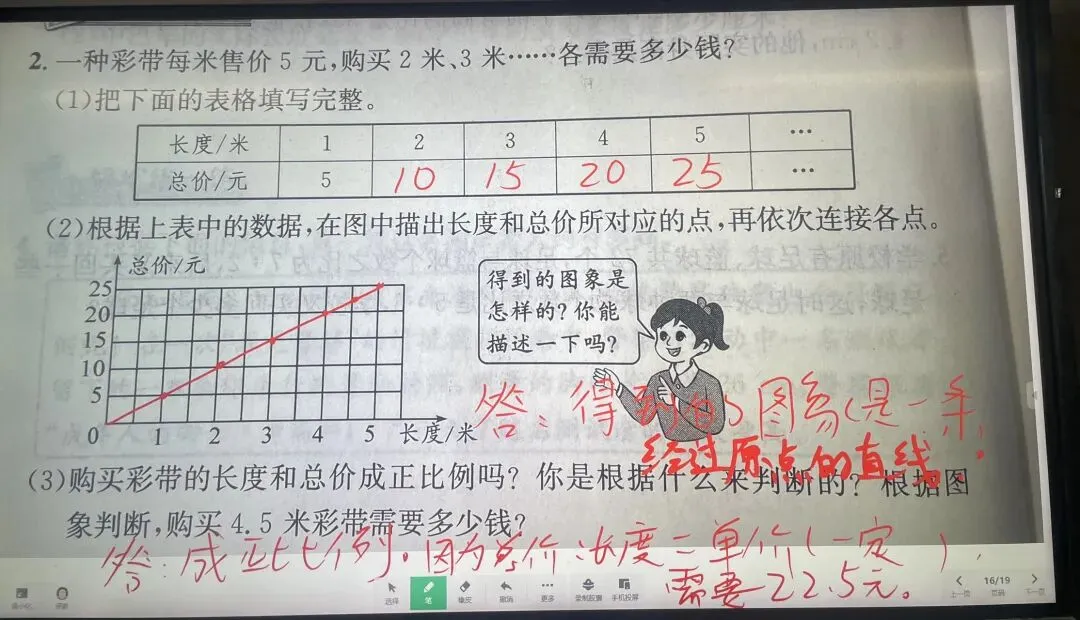 2. 一种彩带每米售价 5 元,购买 2 米、3 米……各需要多少钱?
(1)把下面的表格填写完整。
长度/米 1 2 3 4 5 …
总价/元 5 10 15 20 25 …
(2)根据上表中的数据,在图中描出长度和总价所对应的点,再依次连接各点。
总价/元
25
20
15
10
5
0 1 2 3 4 5 长度/米
得到的图象是
怎样的?你能
描述一下吗?
答:得到的图象是一条
经过原点的直线.
(3)购买彩带的长度和总价成正比例吗? 你是根据什么来判断的? 根据图
象判断,购买 4.5 米彩带需要多少钱?
答:成正比例.因为总价:长度=单价(一定)
需要22.5元。
选择 笔 橡皮 撤消 更多 手机投屏
16/19
上一页 页码 下一页